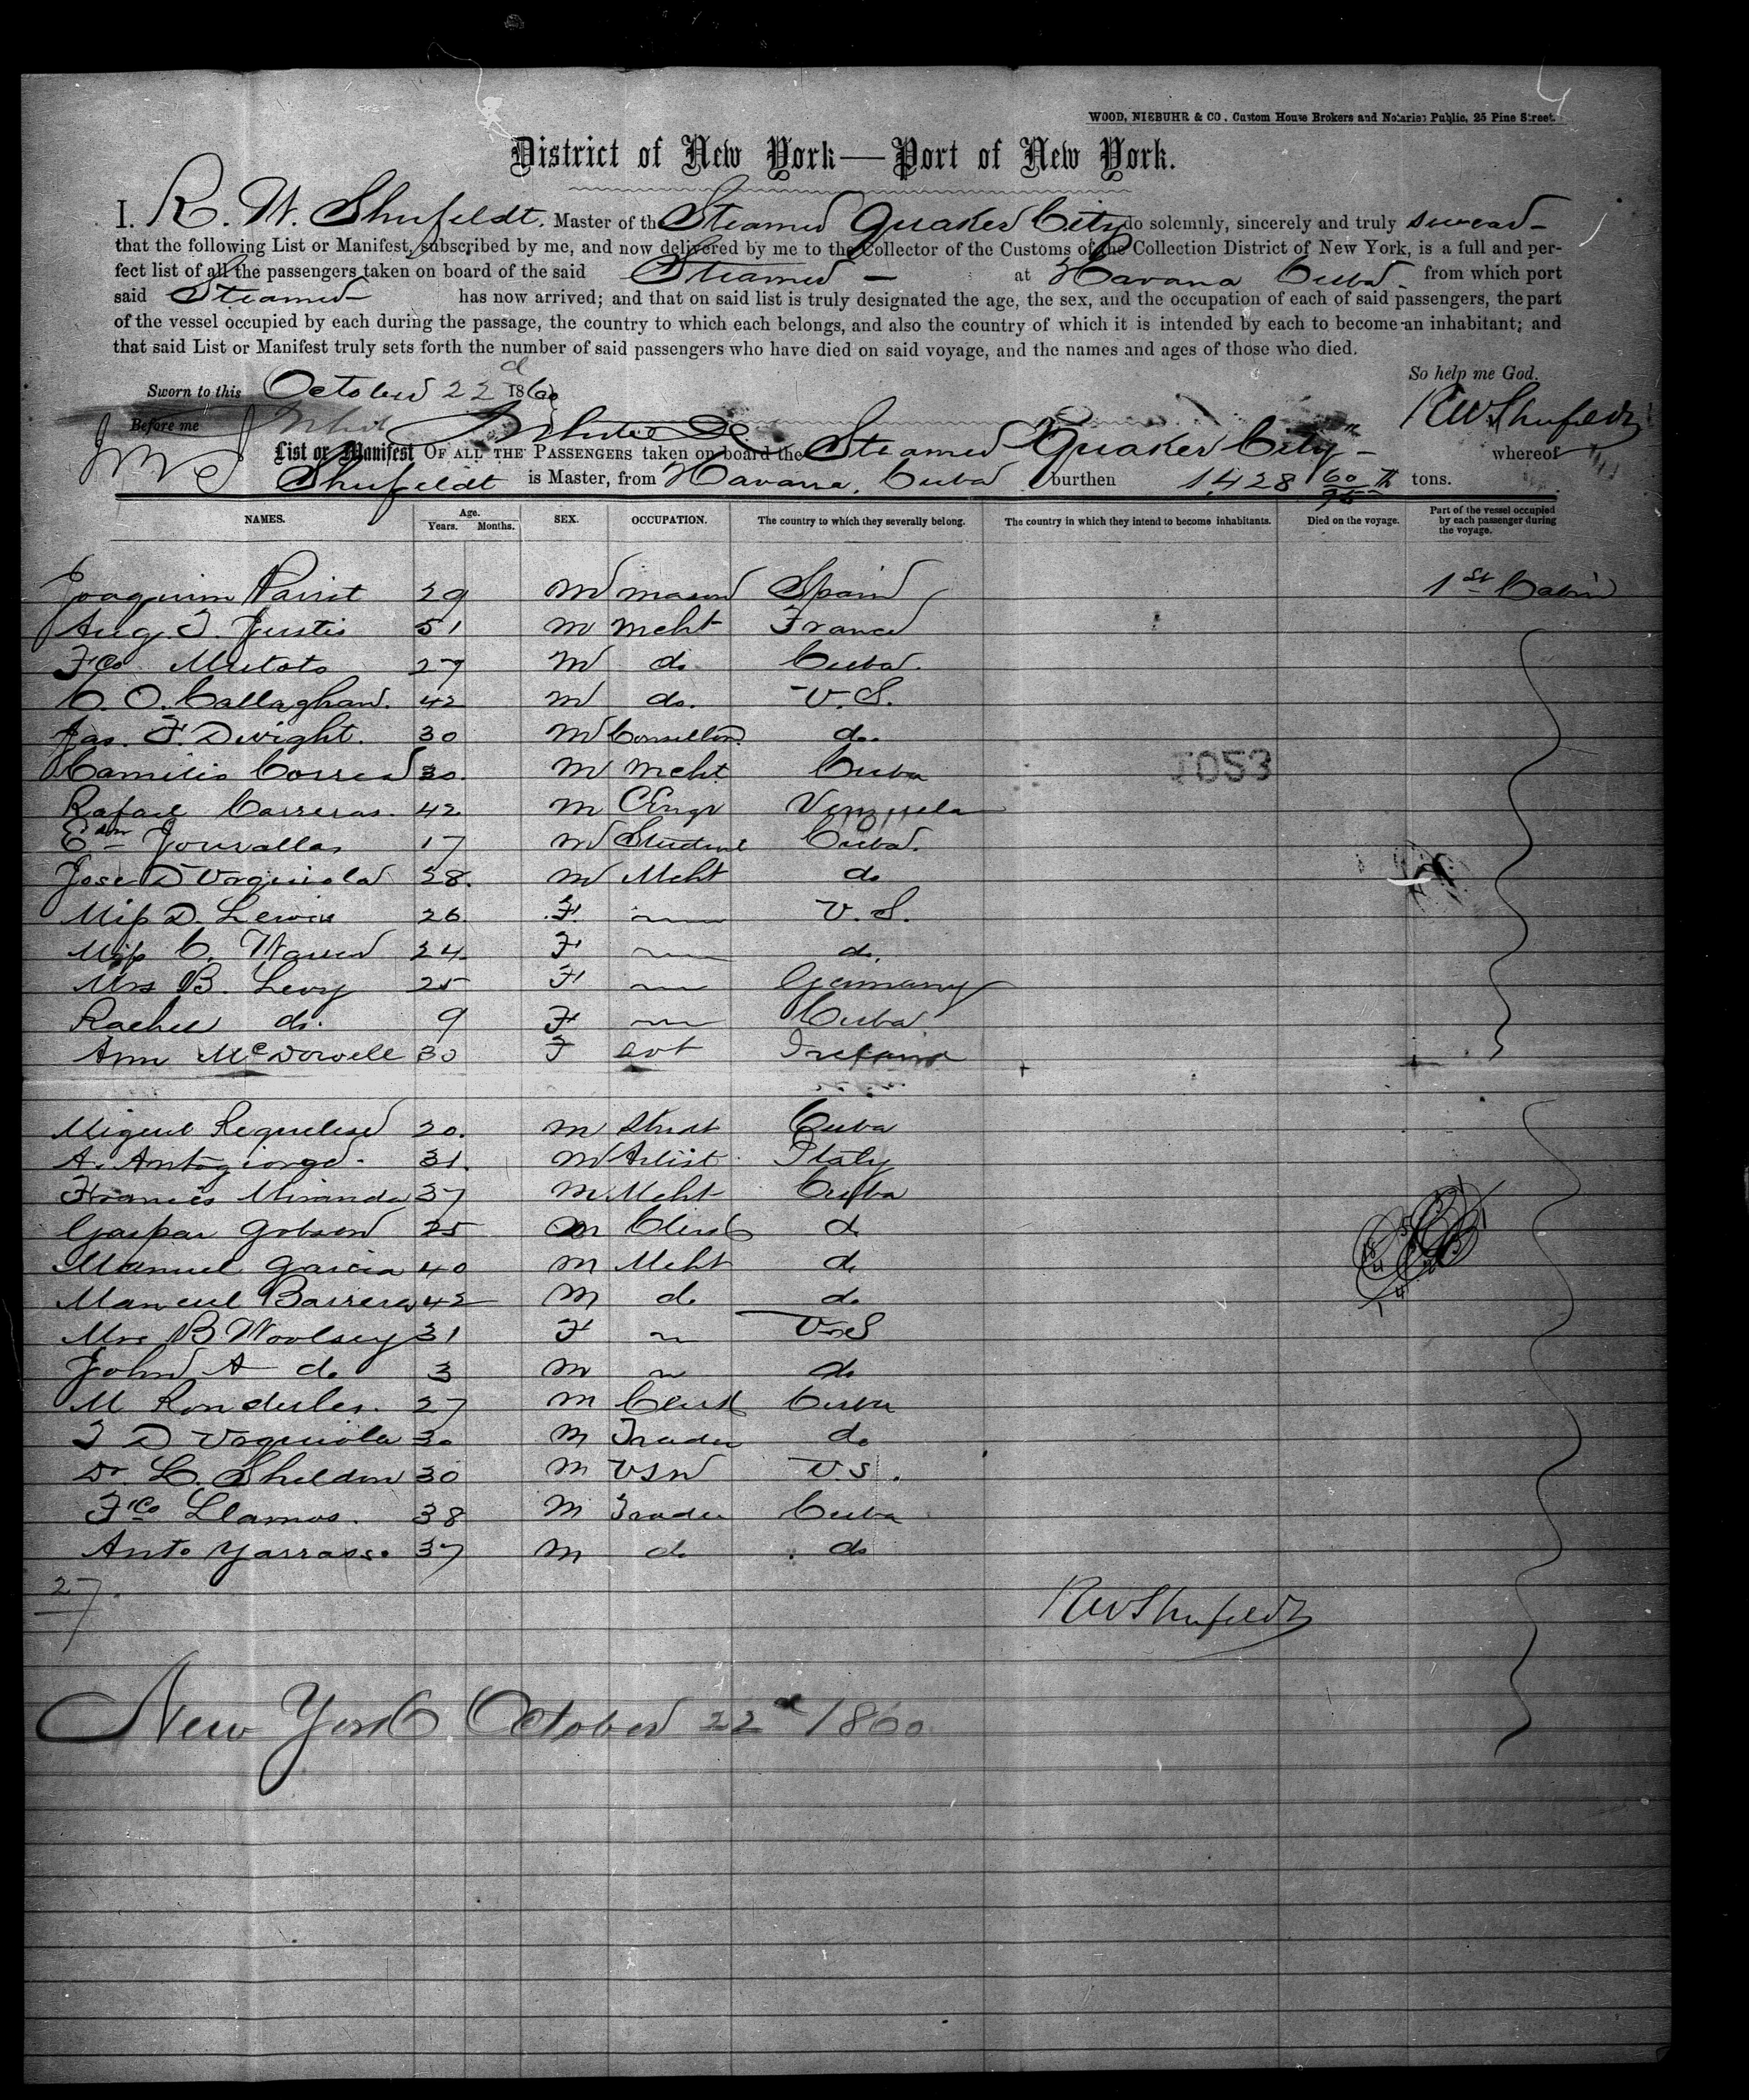 WOOD, NIEBUHR & CO. Custom House Brokers and Notaries Public, 25 Pine Street.
District of New York—Port of New York.
I. R. W. Shufeldt. Master of the Steamer Quaker City do solemnly, sincerely and truly swear
that the following List or Manifest, subscribed by me, and now delivered by me to the Collector of the Customs of the Collection District of New York, is a full and per-
fect list of all the passengers taken on board of the said Steamer at Havana Cuba. from which port
said Steamer has now arrived; and that on said list is truly designated the age, the sex, and the occupation of each of said passengers, the part
of the vessel occupied by each during the passage, the country to which each belongs, and also the country of which it is intended by each to become an inhabitant; and
that said List or Manifest truly sets forth the number of said passengers who have died on said voyage, and the names and ages of those who died.
So help me God.
Sworn to this October 22d 1860
RWShufeldt
Before me
List or Manifest OF ALL THE PASSENGERS taken on board the Steamer Quaker City whereof
Shufeldt is Master, from Havana, Cuba burthen 1428 60/95th tons.
NAMES. Age. Years. Months. SEX. OCCUPATION. The country to which they severally belong. The country in which they intend to become inhabitants. Died on the voyage. Part of the vessel occupied by each passenger during the voyage.
Joaquim 29 M mason Spain 1st Cabin
Aug. Justis 51 M Mcht France
Fco 27 M do Cuba.
C. O. Callaghan. 42 M do. U.S.
Jas. F. Dwight. 30 M do.
Camilio Correa 30. M Mcht Cuba
1053
Rafael Carreras. 42 M CEngr Venzuela
17 M Student Cuba.
Jose D Urquiola 28. M Mcht do
Miss D. Lewis 26. F. U.S.
Miss C. Warren 24 F do.
Mrs B. Levy 25 F Germany
Rachel do. 9 F Cuba
Ann McDowell 30 F svt Ireland
Miguel 20. M Studt Cuba
A. Antogiorge. 31. M Artist Italy
Francis Miranda 37 M Mcht Cuba
Gaspar Gobson 25 M Clerk do
Manuel Garcia 40 M Mcht do
Manuel Barrera 42 M do do
Mrs B Woolsey 31 F U.S
John A do 3 M do
M 27 M Clerk Cuba
D Urquiola 30 M Trader do
Dr L. Sheldon 30 M USN U.S.
Fco Llamos. 38 M Trader Cuba
Anto Yarrasso 37 M do do
27
RWShufeldt
New York October 22d 1860